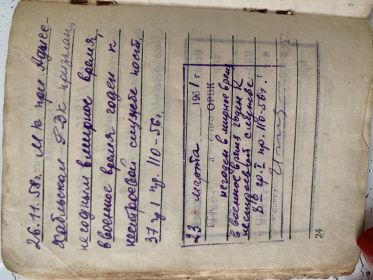 26.11.58г. М К при
РВК признан
негодным в мирное время,
в военное время годен к
нестроевой службе по ст.
37 гр I пр. 110-56г.
23 марта 1961г.
ОРВК
негоден в мирное время
в военное время годен к
нестроевой службе
гр. I пр. 110-56г.
24